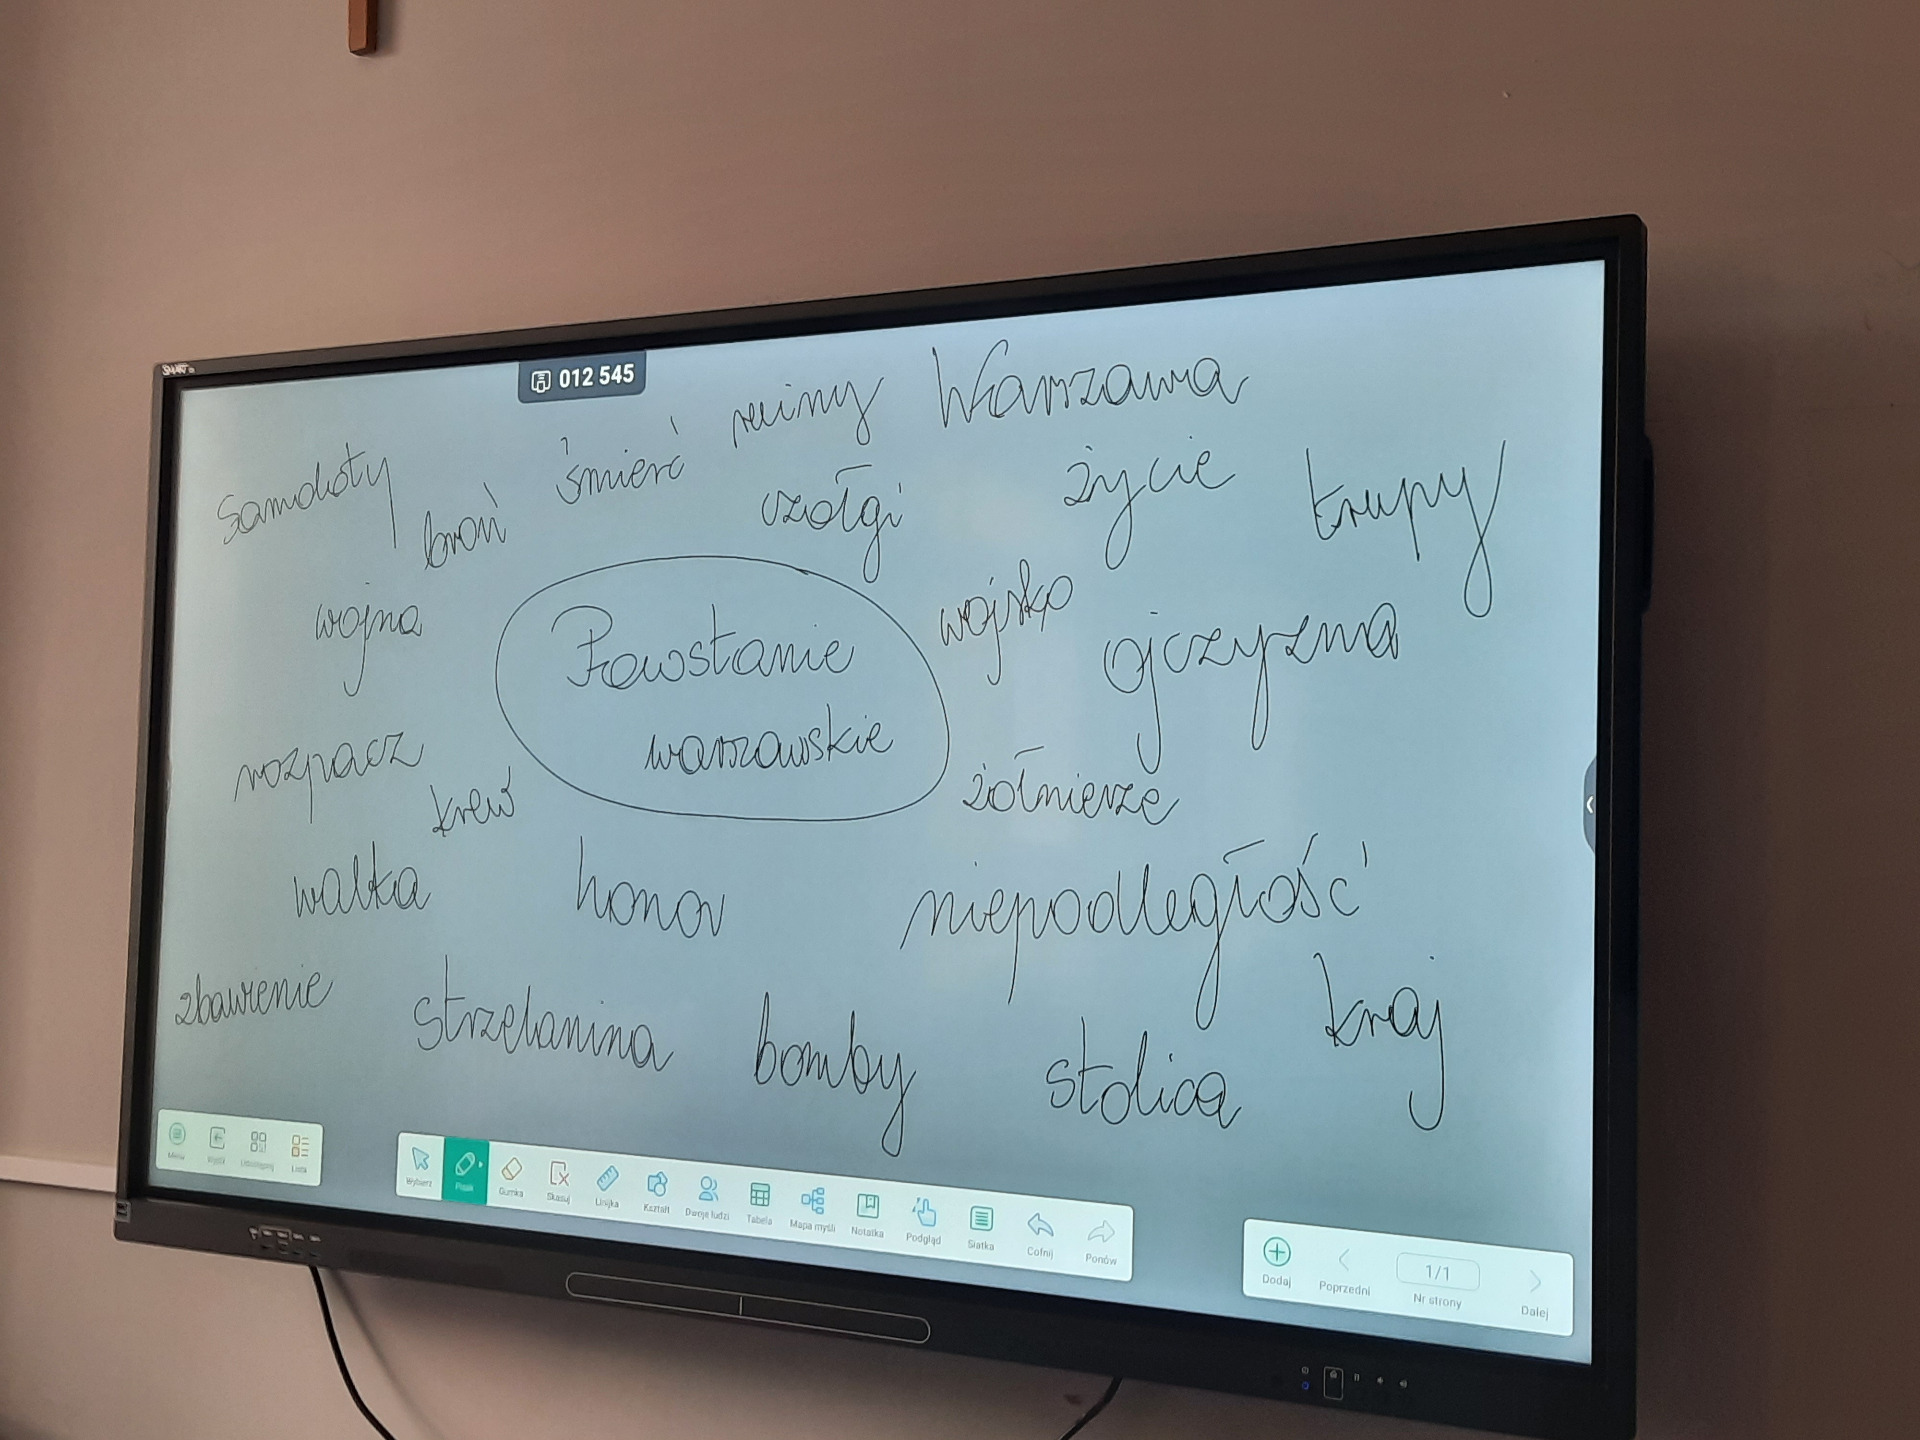 SMART
012 545
Samoloty
broń
śmierć
ruiny
Warszawa
czołgi
życie
trupy
wojna
Powstanie
warszawskie
wojsko
ojczyzna
rozpacz
krew
żołnierze
walka
honor
niepodległość
zbawienie
strzelanina
bomby
stolica
kraj
Menu
Wyjdź
Udostępnij
Lista
Wybierz
Pisak
Gumka
Skasuj
Linijka
Kształt
Dwoje ludzi
Tabela
Mapa myśli
Notatka
Podgląd
Siatka
Cofnij
Ponów
Dodaj
Poprzedni
1/1
Nr strony
Dalej